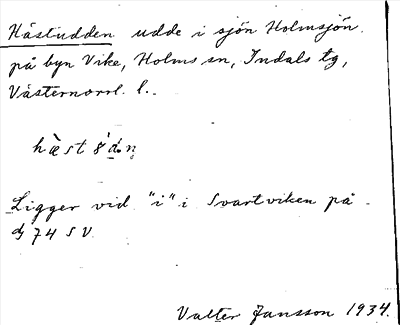 Hästudden udde i sjön Holmsjön
på byn Vike, Holms sn, Indals tg,
Västernorrl. l.
Ligger vid "i" i Svartviken på
dj 74 SV.
Valter Jansson 1934.